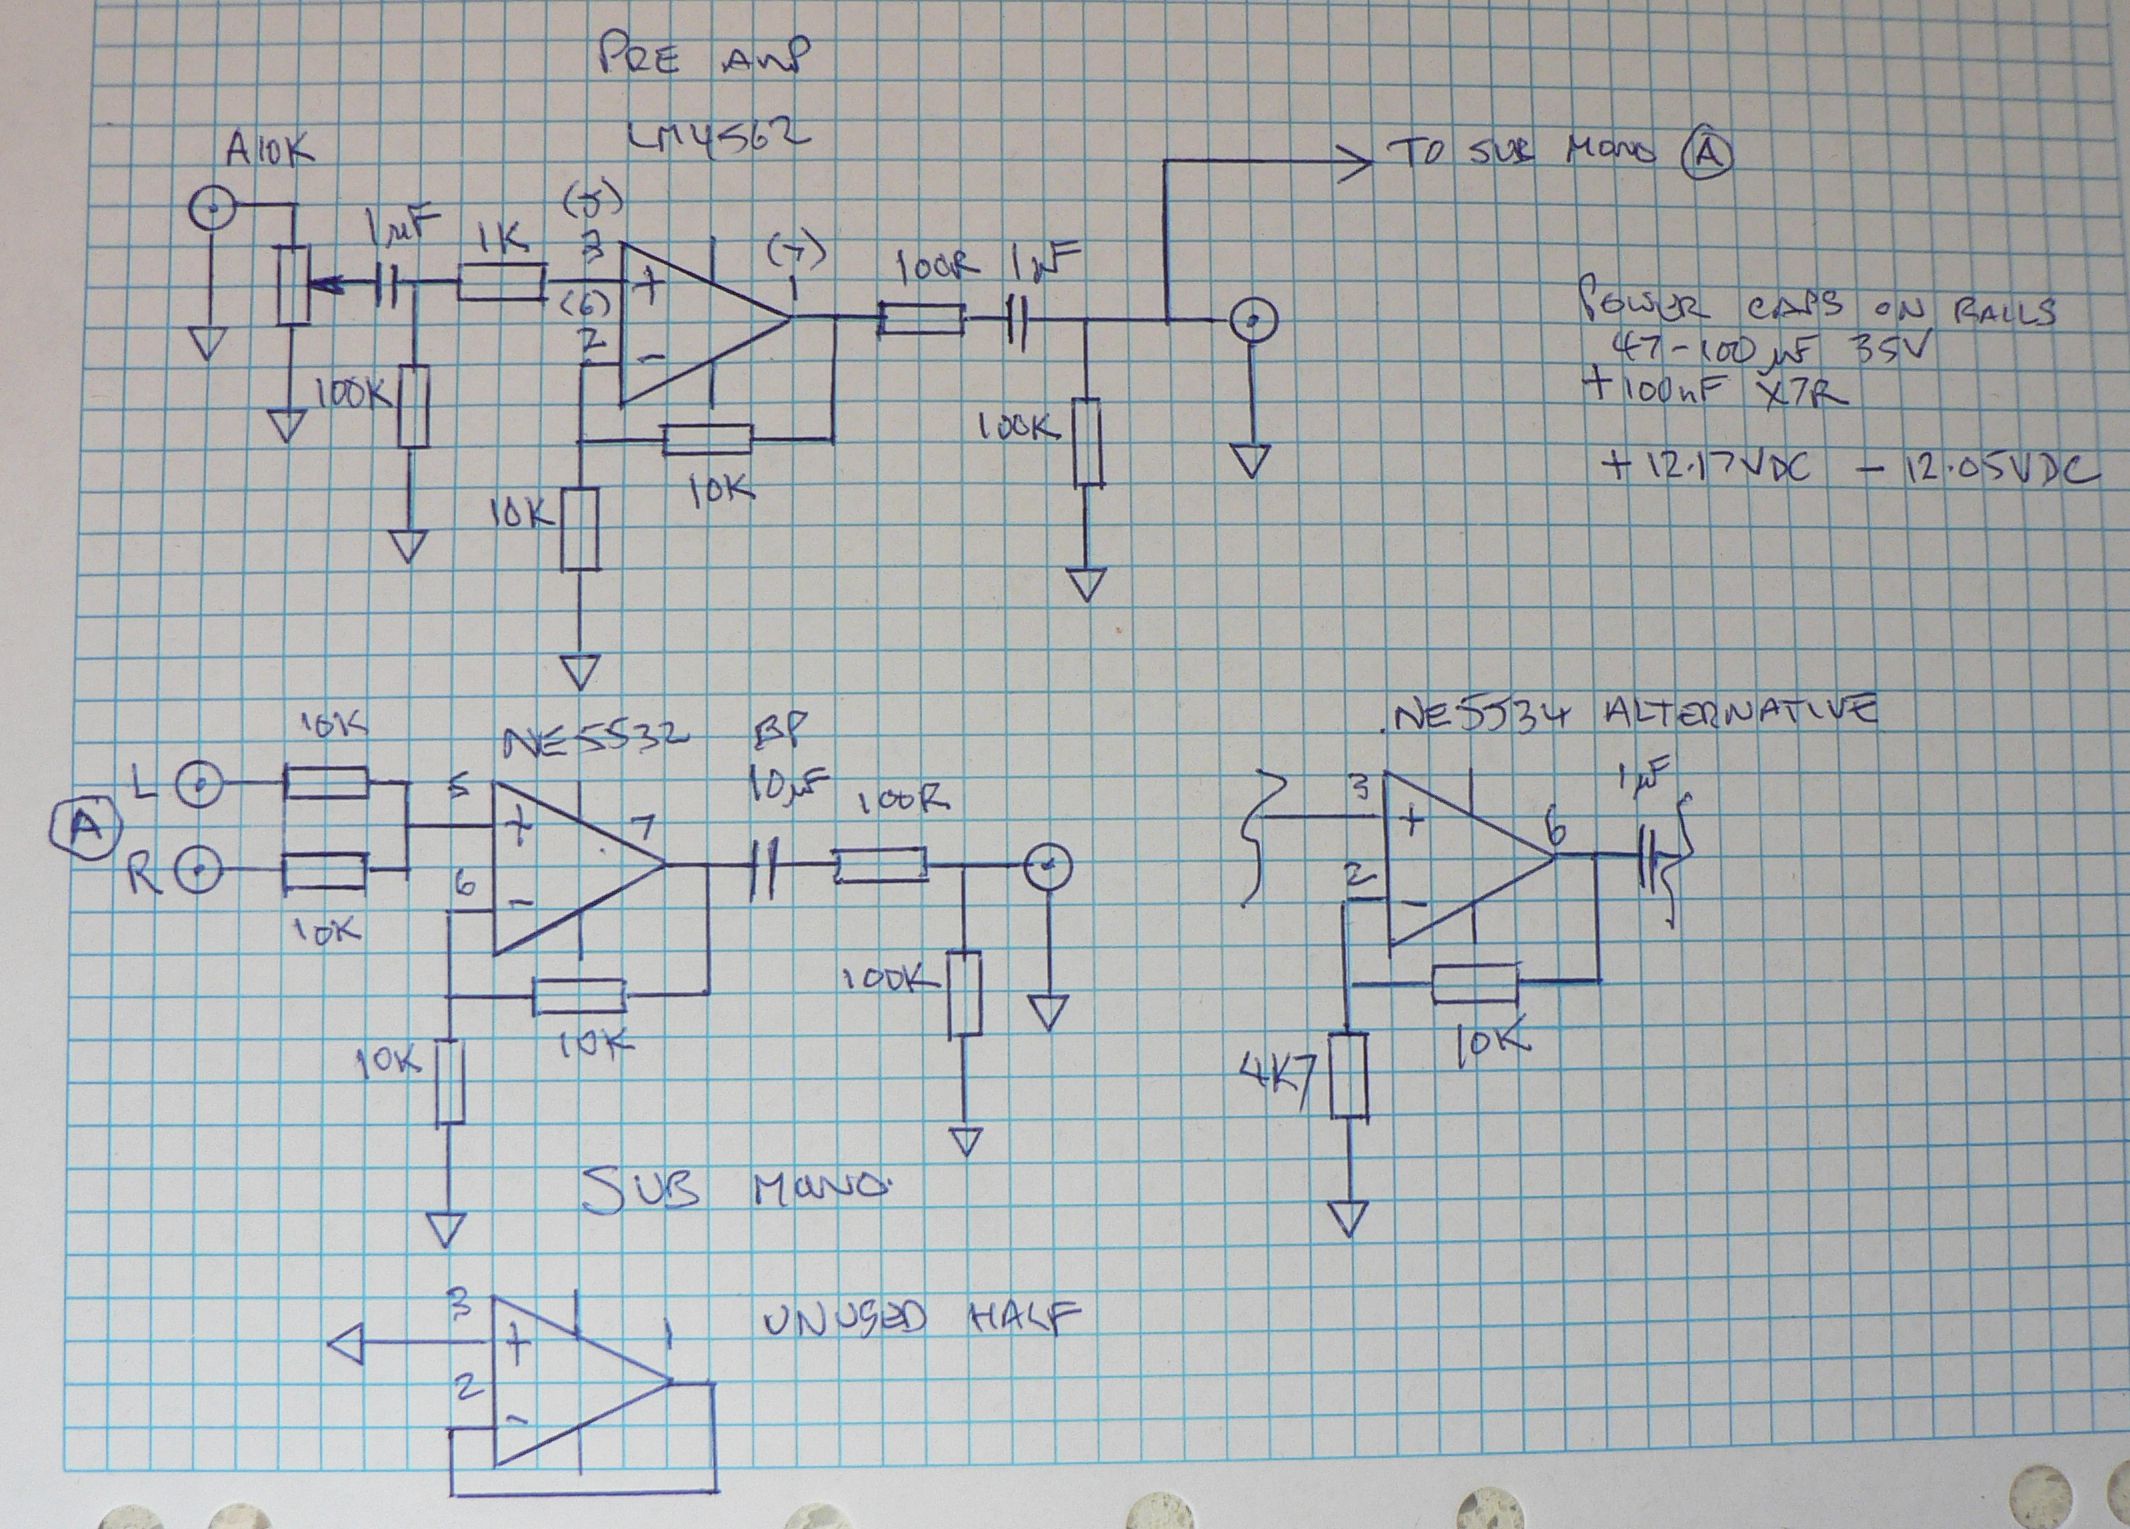 PRE AMP
LM4562
A10K
TO SUB MONO A
(5)
1µF
1K
3
(7)
1
100R
1µF
+
(6)
2
-
POWER CAPS ON RAILS
47-100µF 35V
+100nF X7R
100K
100K
+12.17VDC -12.05VDC
10K
10K
NE5534 ALTERNATIVE
10K
NE5532
BP
10µF
100R
L
5
+
7
A
R
6
-
10K
3
+
6
1µF
2
-
100K
10K
10K
4K7
10K
SUB MONO.
3
+
1
UNUSED HALF
2
-